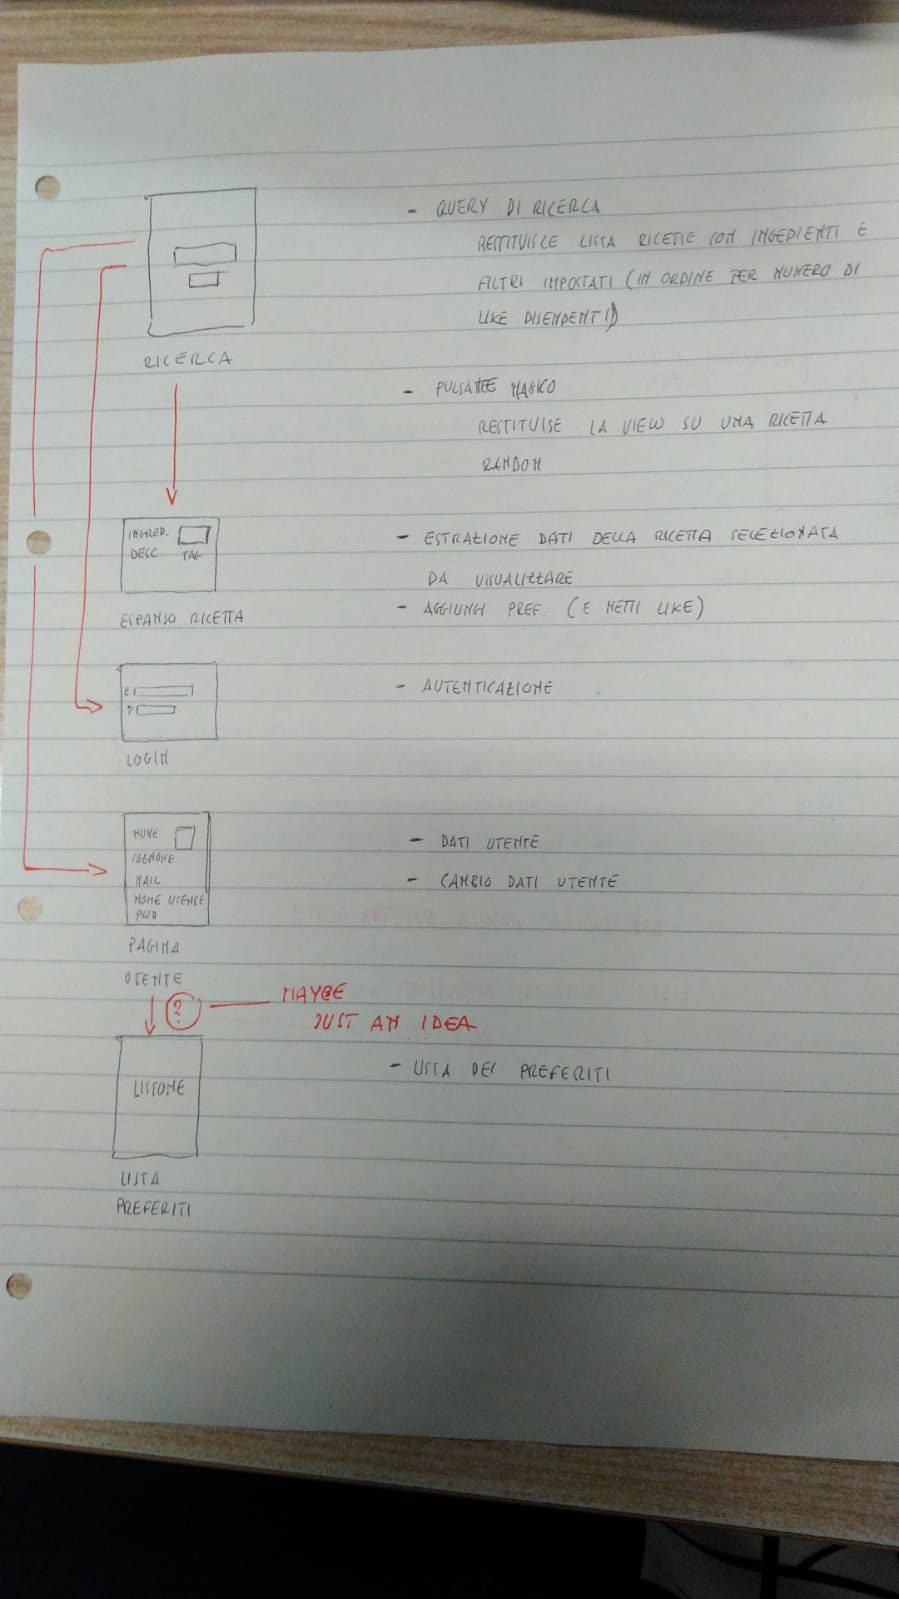 - QUERY DI RICERCA
RESTITUISCE LISTA RICETTE CON INGEDIENTI E
FILTRI IMPOSTATI (IN ORDINE PER NUMERO DI
LIKE DISENDENTI)
RICERCA
- PULSANTE MAGICO
RESTITUISE LA VIEW SU UNA RICETTA
RANDOM
INGRED.
DESC. TAG
ESPANSO RICETTA
- ESTRAZIONE DATI DELLA RICETTA SELEZIONATA
DA VISUALIZZARE
- AGGIUNGI PREF. (E METTI LIKE)
E
P
LOGIN
- AUTENTICAZIONE
NOME
COGNOME
MAIL
NOME UTENTE
PWD
PAGINA
UTENTE
- DATI UTENTE
- CAMBIO DATI UTENTE
? MAYBE
JUST AN IDEA
LISTONE
LISTA
PREFERITI
- LISTA DEI PREFERITI